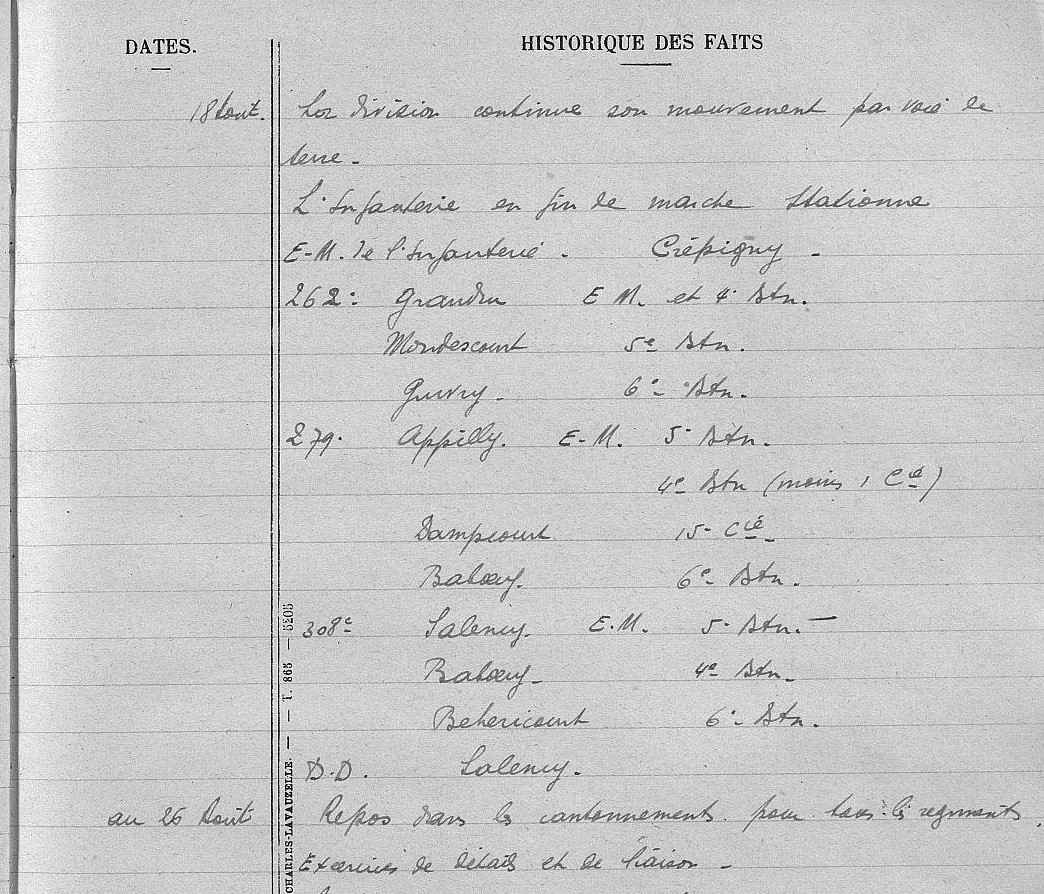 DATES.
HISTORIQUE DES FAITS
18 Aout. La division continue son mouvement par voie de
terre -
L'Infanterie en fin de marche stationne
E-M. de l'Infanterie. Crépigny -
262e Grandru E M. et 4e Btn.
Mondescourt 5e Btn.
Guivry - 6e Btn.
279. Appilly. E-M. 5e Btn.
4e Btn (moins 1 Cie)
Dampcourt 15e Cie -
Babœuf. 6e Btn.
308e Salency. E.M. 5e Btn. -
Babœuf - 4e Btn -
Behericourt 6e Btn.
D.D. Salency.
au 26 Aout Repos dans les cantonnements pour tous les regiments.
Exercices de détails et de liaison -
CHARLES-LAVAUZELLE. — — T. 865 — 5205